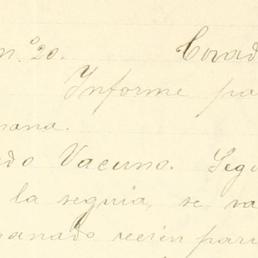 n.º 20.
Informe pa
mana.
do Vacuno. Segu
la seguia, se va
anado recien pari